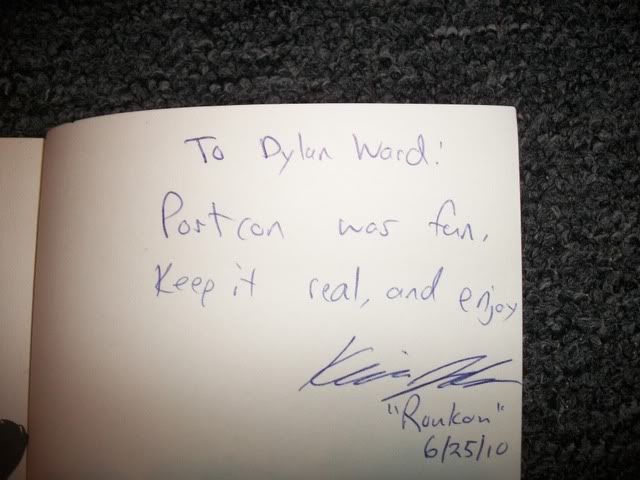 To Dylan Ward:
Postcon was fun.
Keep it real, and enjoy
"Roukan"
6/25/10